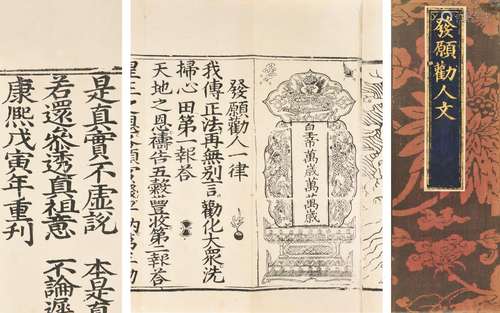 發願勸人文
皇帝萬歲萬萬歲
發願勸人一律
我傳正法再無別言勸化大衆洗
掃心田第一報答
天地之恩禱告五穀豐收第二報答
是真實不虛說 本是真
若還參透真祖意 不論遲
康熙戊寅年重刊